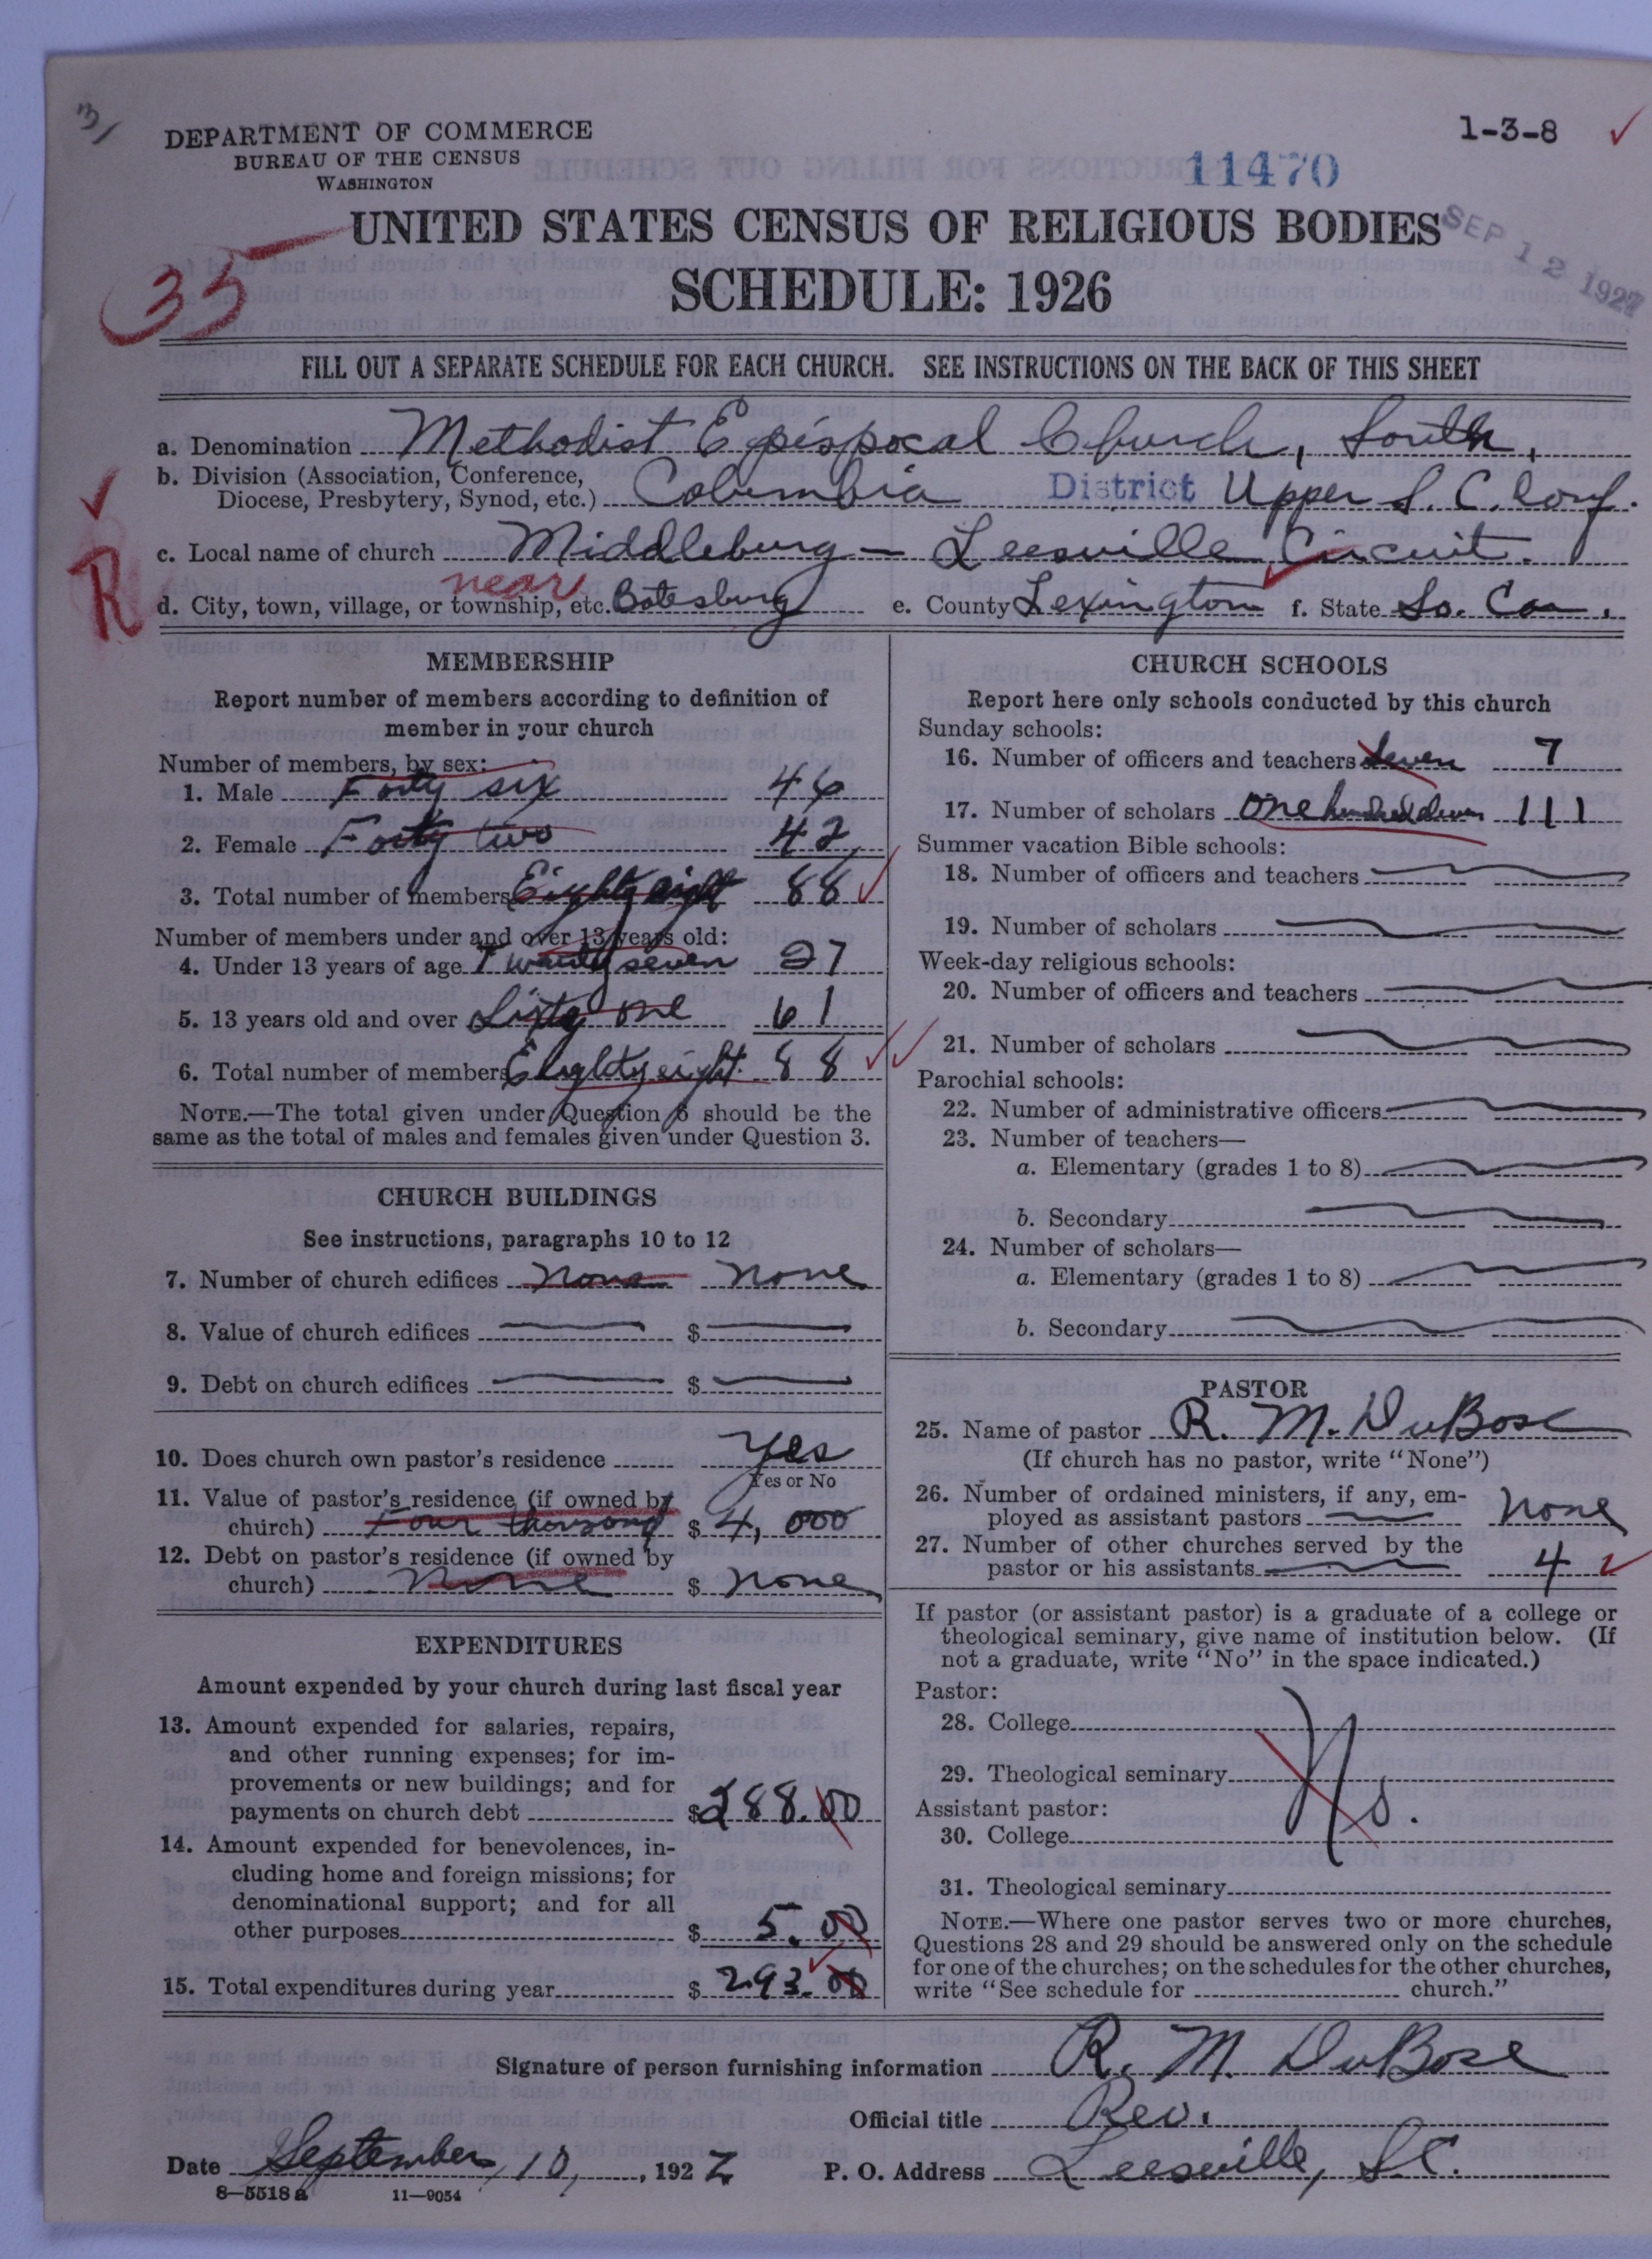 31
DEPARTMENT OF COMMERCE
BUREAU OF THE CENSUS
WASHINGTON
1-3-8
11470
UNITED STATES CENSUS OF RELIGIOUS BODIES
SEP 12 1927
SCHEDULE: 1926
35
FILL OUT A SEPARATE SCHEDULE FOR EACH CHURCH. SEE INSTRUCTIONS ON THE BACK OF THIS SHEET
a. Denomination Methodist Epispocal Church, South,
b. Division (Association, Conference,
Diocese, Presbytery, Synod, etc.) Columbia District Upper S. C. Conf.
c. Local name of church Middleburg — Leesville Circuit.
R
near
d. City, town, village, or township, etc. Batesburg e. County Lexington f. State So. Ca.
MEMBERSHIP
Report number of members according to definition of
member in your church
Number of members, by sex:
1. Male Forty six 46
2. Female Forty two 42
3. Total number of members Eighty eight 88
Number of members under and over 13 years old:
4. Under 13 years of age Twenty seven 27
5. 13 years old and over Sixty one 61
6. Total number of members Eighty eight 88
NOTE.—The total given under Question 6 should be the
same as the total of males and females given under Question 3.
CHURCH BUILDINGS
See instructions, paragraphs 10 to 12
7. Number of church edifices none none
8. Value of church edifices $
9. Debt on church edifices $
10. Does church own pastor's residence yes
Yes or No
11. Value of pastor's residence (if owned by
church) Four thousand $ 4,000
12. Debt on pastor's residence (if owned by
church) none $ none
EXPENDITURES
Amount expended by your church during last fiscal year
13. Amount expended for salaries, repairs,
and other running expenses; for im-
provements or new buildings; and for
payments on church debt $288.00
14. Amount expended for benevolences, in-
cluding home and foreign missions; for
denominational support; and for all
other purposes $ 5.00
15. Total expenditures during year $ 293.00
CHURCH SCHOOLS
Report here only schools conducted by this church
Sunday schools:
16. Number of officers and teachers Seven 7
17. Number of scholars One hundred eleven 111
Summer vacation Bible schools:
18. Number of officers and teachers
19. Number of scholars
Week-day religious schools:
20. Number of officers and teachers
21. Number of scholars
Parochial schools:
22. Number of administrative officers
23. Number of teachers—
a. Elementary (grades 1 to 8)
b. Secondary
24. Number of scholars—
a. Elementary (grades 1 to 8)
b. Secondary
PASTOR
25. Name of pastor R. M. DuBose
(If church has no pastor, write "None")
26. Number of ordained ministers, if any, em-
ployed as assistant pastors none
27. Number of other churches served by the
pastor or his assistants 4
If pastor (or assistant pastor) is a graduate of a college or
theological seminary, give name of institution below. (If
not a graduate, write "No" in the space indicated.)
Pastor:
28. College
29. Theological seminary No.
Assistant pastor:
30. College
31. Theological seminary
NOTE.—Where one pastor serves two or more churches,
Questions 28 and 29 should be answered only on the schedule
for one of the churches; on the schedules for the other churches,
write "See schedule for church."
Signature of person furnishing information R. M. DuBose
Official title Rev.
Date September, 10, , 192 P. O. Address Leesville, S.C.
8—5518 a 11—9054